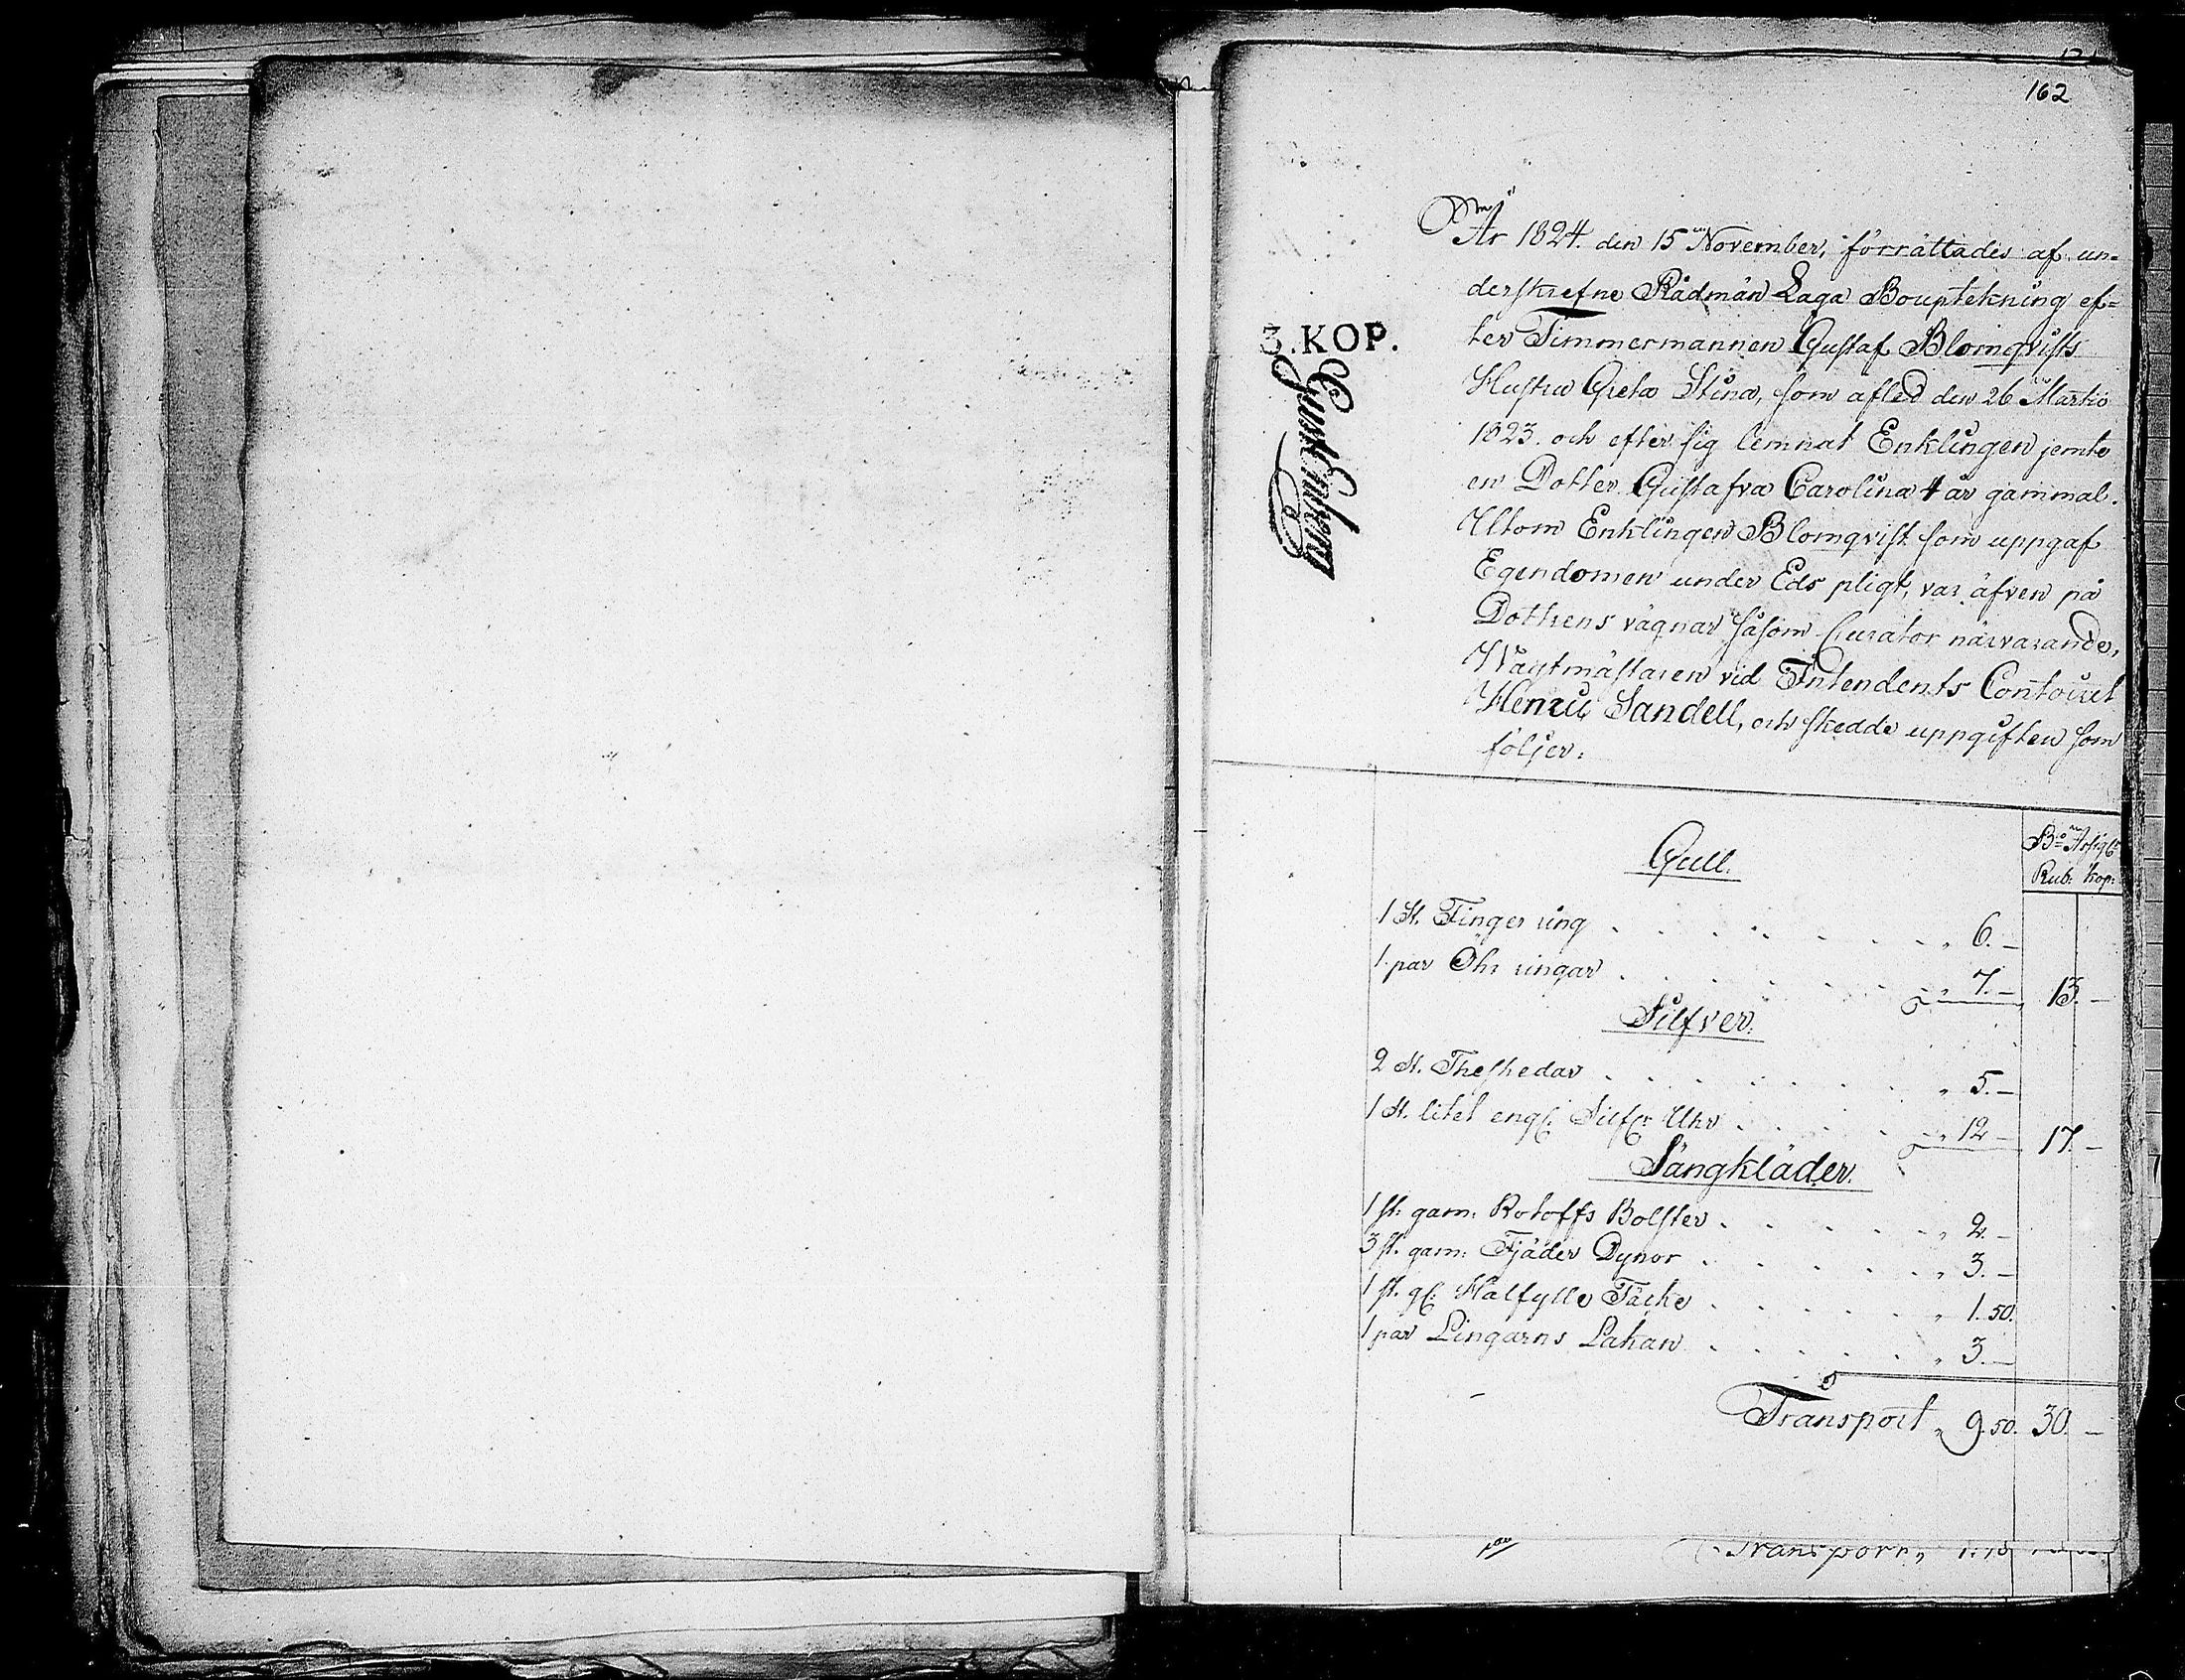 162
År 1824. den 15 November, förrättades af un-
derskrefne Rådmän Laga Bouptekning ef-
ter Timmermannen Gustaf Blomqvists
Hustru Greta Stina, som afled den 26 Martio
1823. och efter sig lemnat Enklingen jemte
en Dotter Gustafva Carolina 4 år gammal.
Utom Enklingen Blomqvist som uppgaf
Egendomen under Eds pligt, var äfven på
Dottrens vägnar såsom Curator närvarande,
Wagtmästaren vid Intendents Contoiret
Henric Sandell, och skedde uppgiften som
följer:
3.KOP.
Rub: kop:
Gull.
1 st. Finger ring 6.—
1 par Öhr ringar 7.— 13.—
Silfver.
2 st. Theskedar 5.—
1 st. litet engl: Silfr: Uhr 12— 17.—
Sängkläder.
1 st: gam: Rotoffs Bolster 2.—
3 st. gam: Fjäder Dynor 3.—
1 st. gl: Hålfylle Täcke 1.50.
1 par Lingarns Lakan 3.—
Transport 9.50. 30.—
Transport